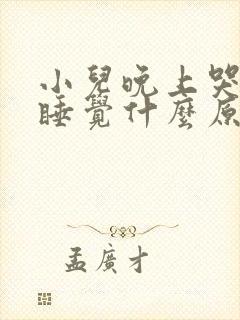 小兒晚上哭
睡覺什麼原
孟廣才